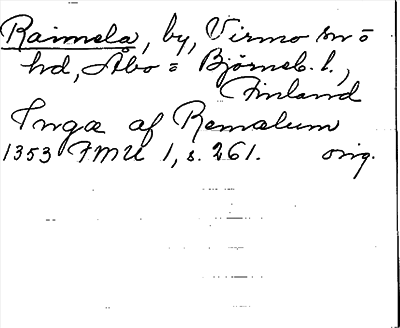 Raimela, by, Virmo sn o
hd, Åbo = Björneb. l.,
Finland
Inga af Remalum
1353 FMU 1, s. 261. orig.